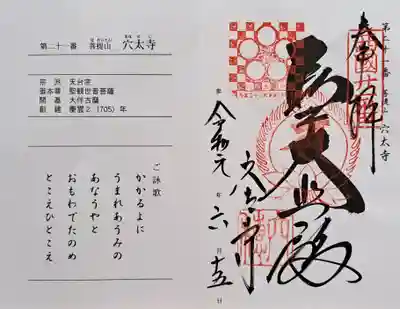 第二十一番 菩提山 穴太寺
宗派 天台宗
御本尊 聖観世音菩薩
開基 大伴古麿
創建 慶雲2(705)年
ご詠歌
かかるよに
うまれあうみの
あなうやと
おもわでたのめ
とこえひとこえ
第二十一番 菩提山 穴太寺
奉拝
大悲殿
穴太寺
令和元年六月十五日